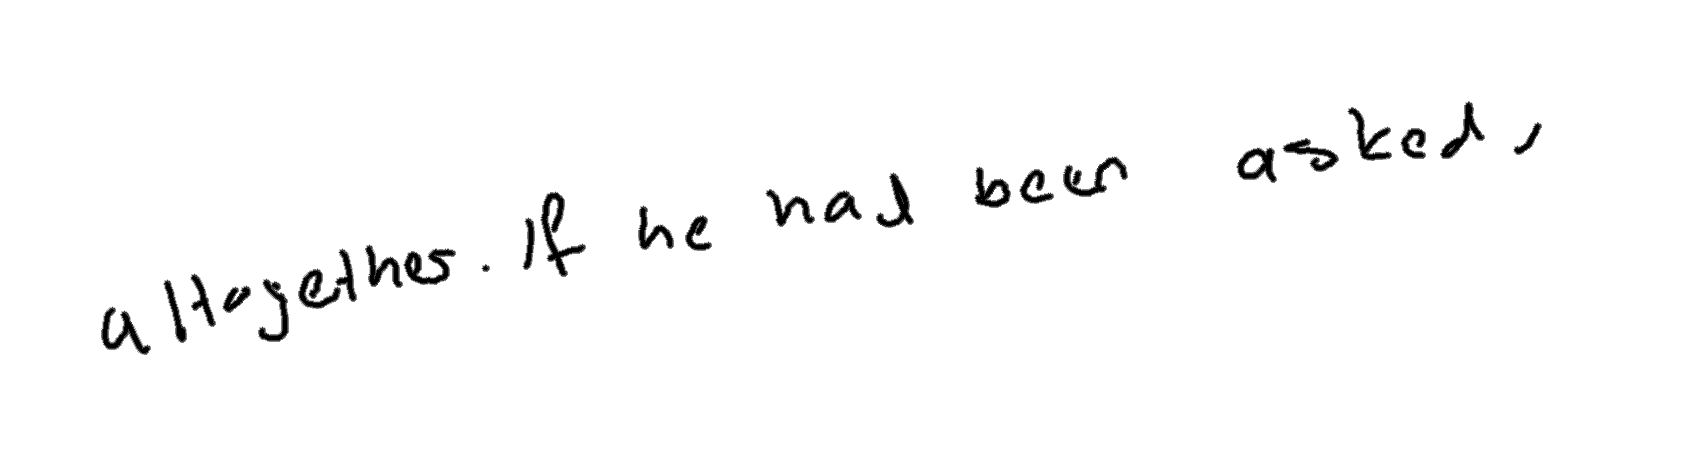 altogether. If he had been asked,